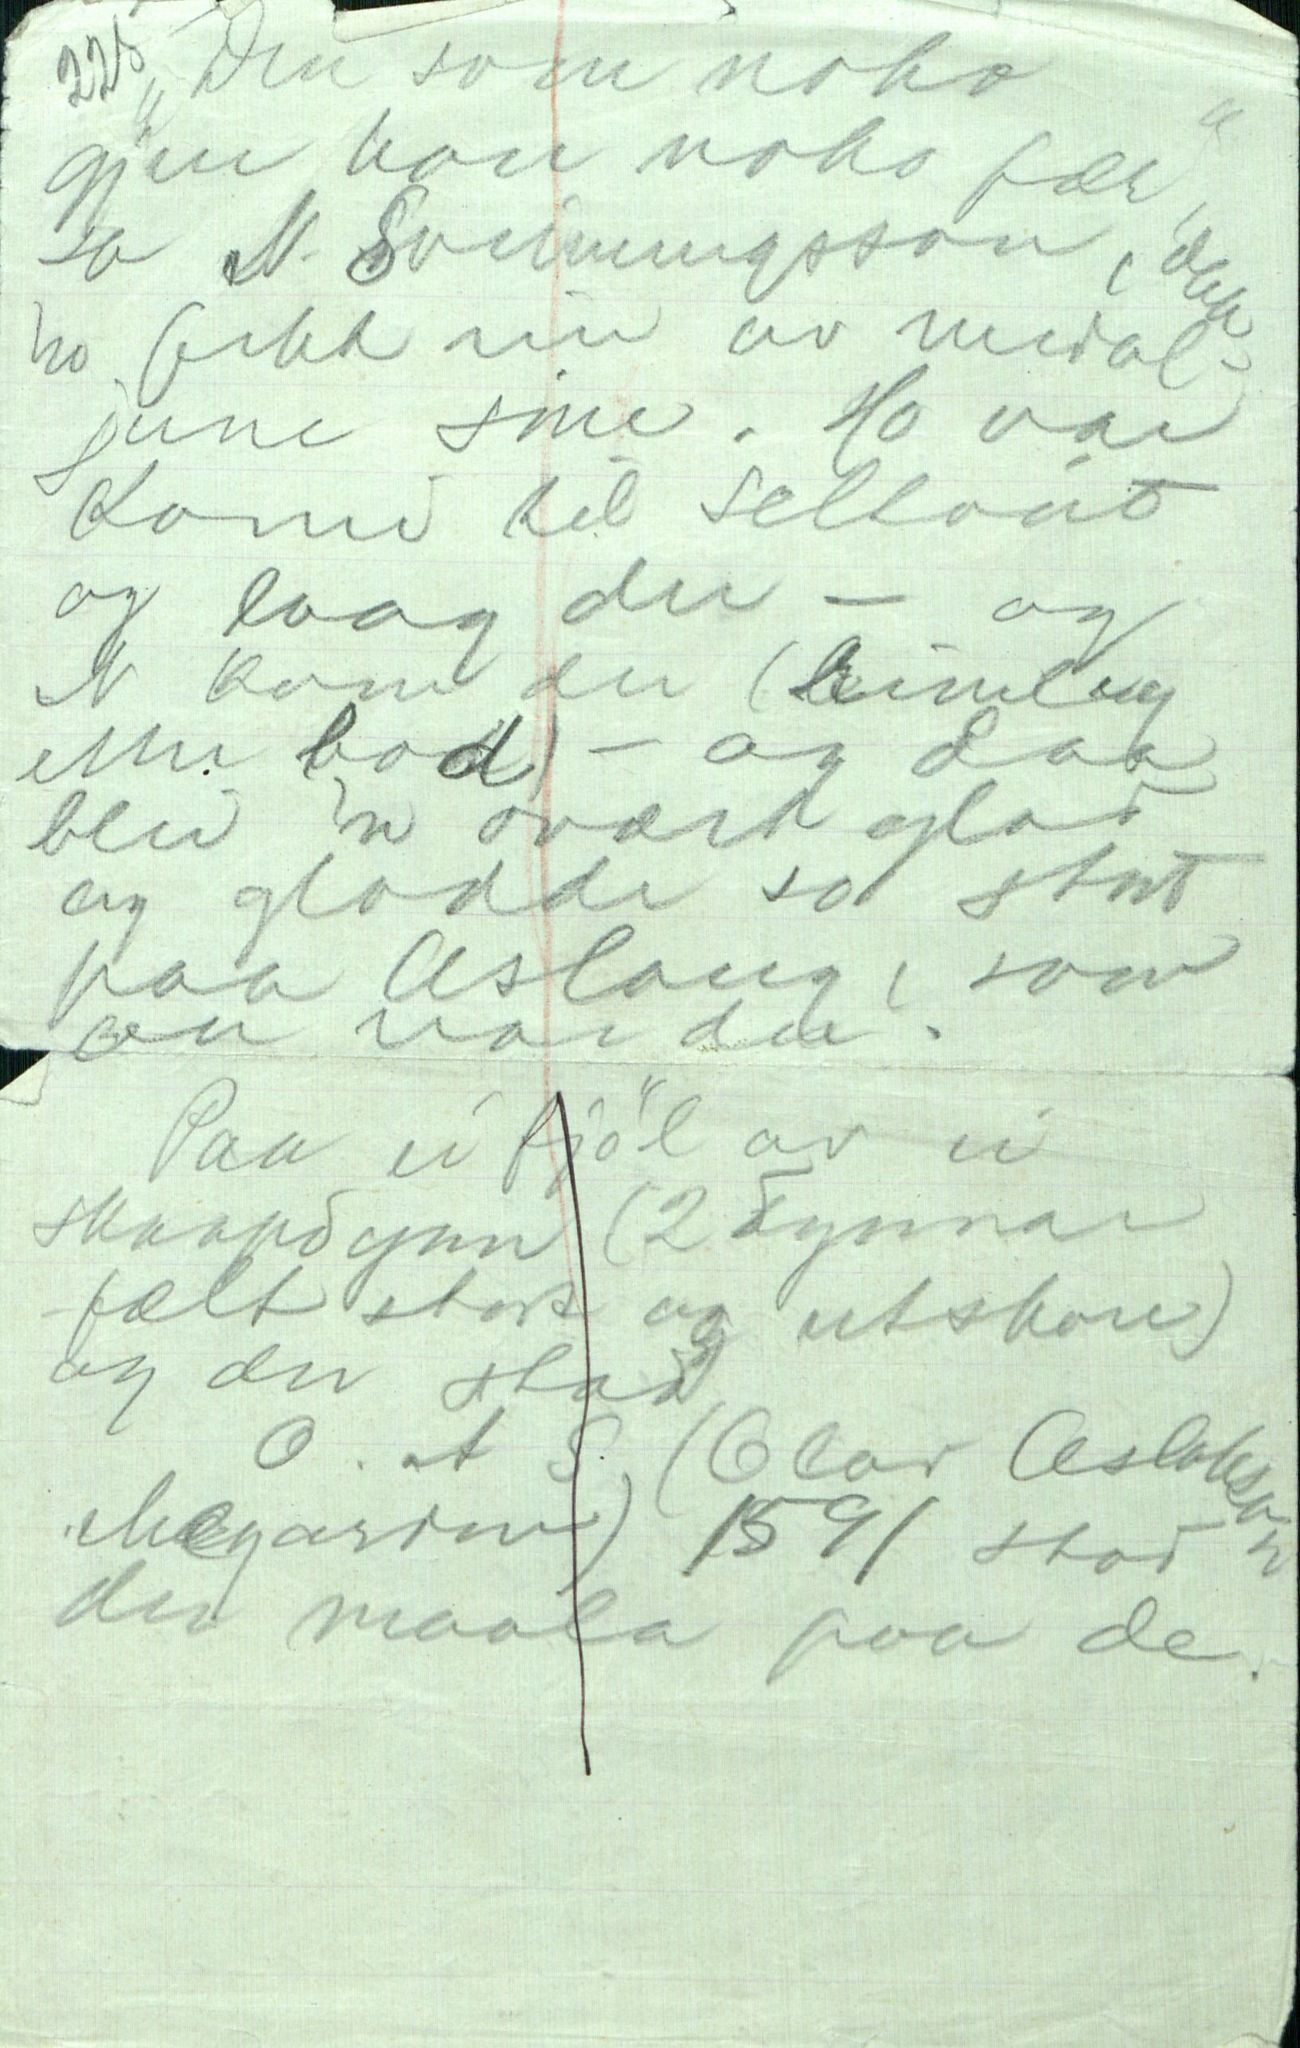 225
"Den som noko
gjev han noko fær",
sa N. Sveinungsson, daa
'n fekk ein av medal-
june sine. Ho var
komi til Seltveit
og laag der — og
N kom der (heimleg
etter bod) — og daa
blei 'n svært glad
og gladde so stort
paa Aslaug, som
au var der.
Paa ei fjöl av ei
skaapdynn (2 dynnar
fælt stork og utskore)
og der stod
O. A S. (Olav Aslakson
Megarden) 1591 stod
der maala paa de.